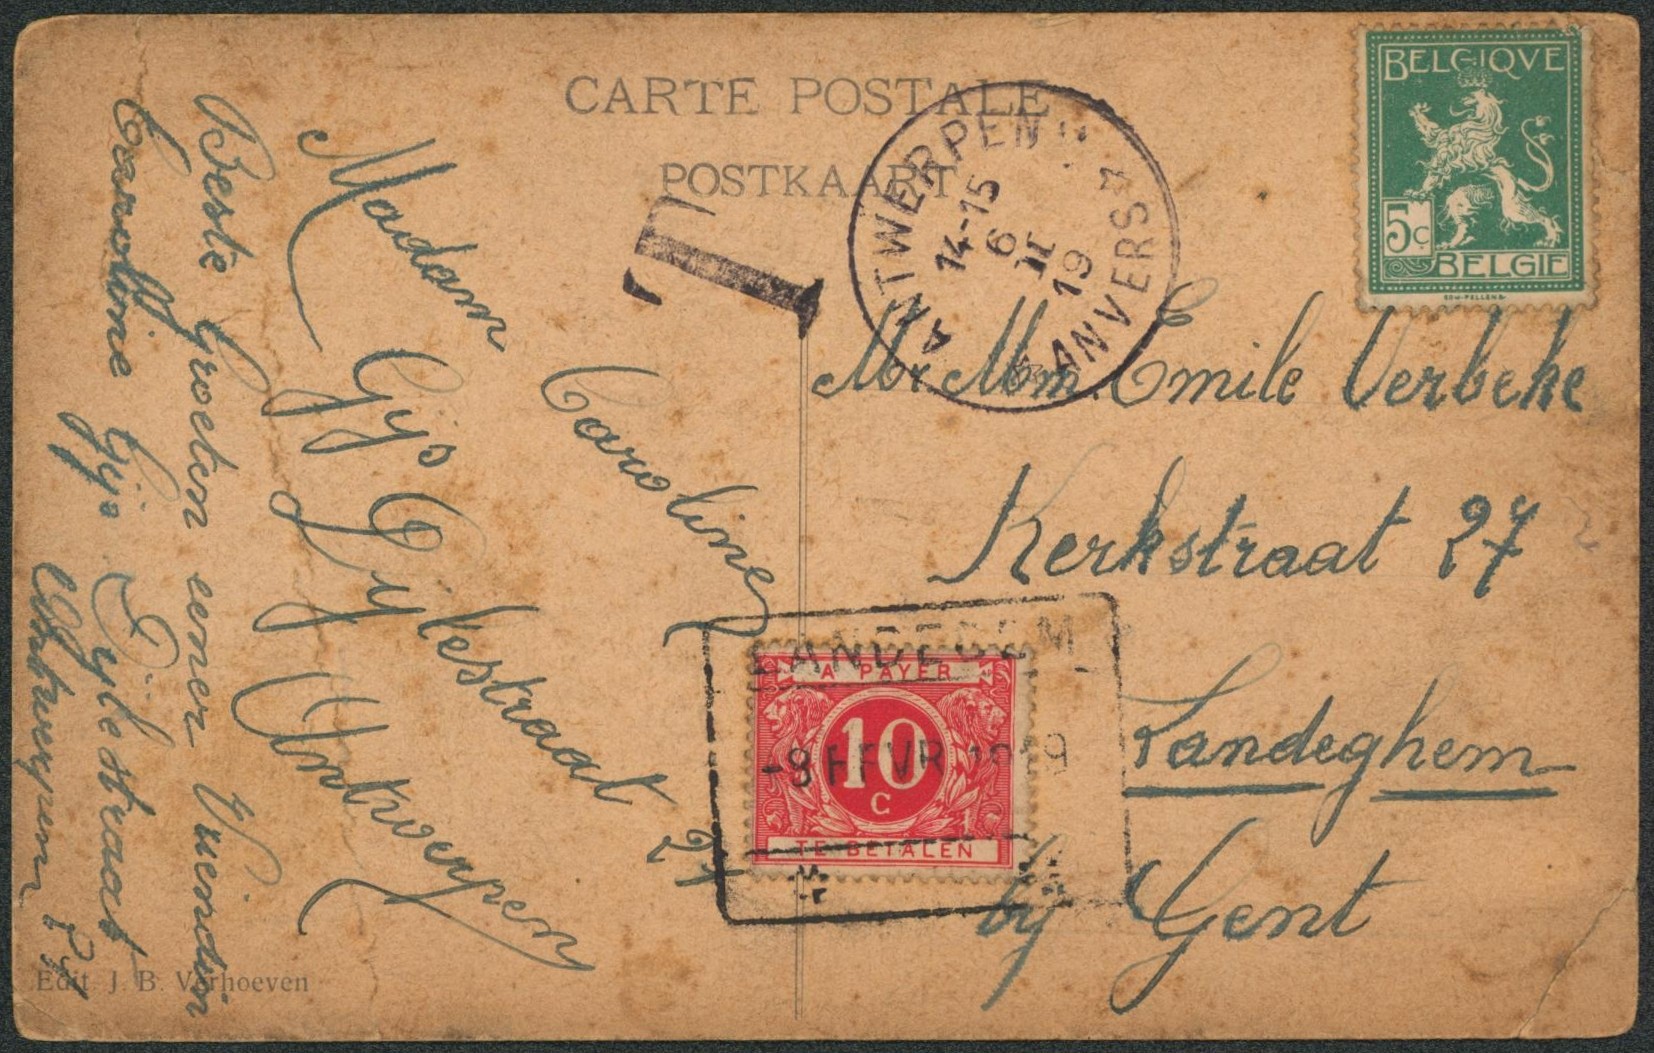 CARTE POSTALE
POSTKAART
BELGIQUE
5c
BELGIE
ANTWERPEN
14-15
6
II
19
ANVERS
T
Mr Mm. Emile Verbeke
Kerkstraat 27
Landeghem
by Gent
LANDEGEM
A PAYER
10
C
TE BETALEN
-8 FEVR 1919
Madam Caroline
Gijs Dylestraat 27
Antwerpen
Beste Groeten eener Vriendin
Caroline Gijs Dylestraat 27
Antwerpen
Edit J. B. Verhoeven